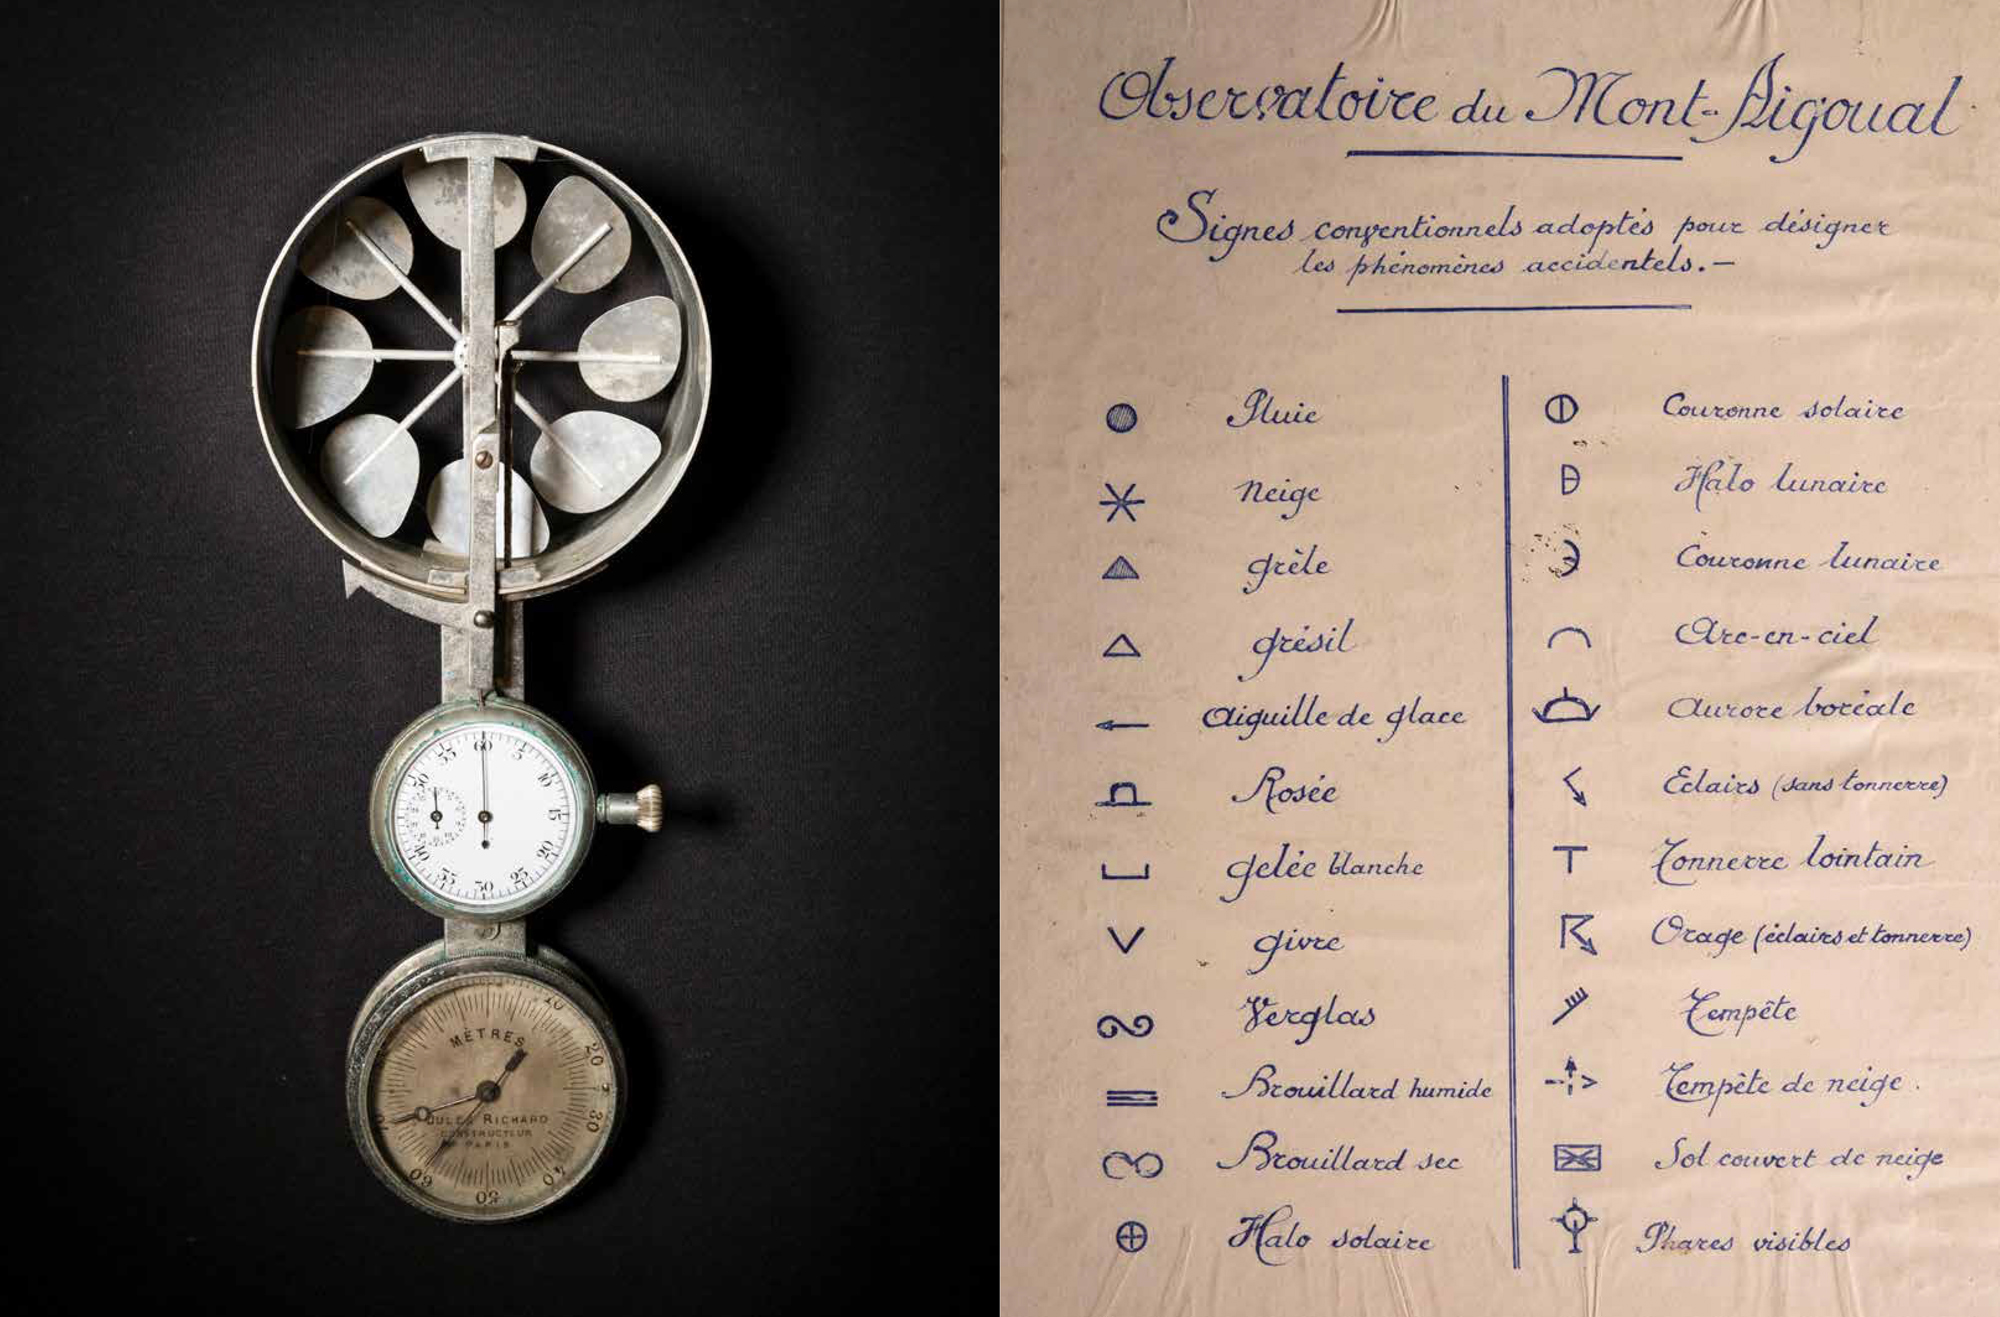 60
5
10
15
20
25
30
35
40
50
55
MÈTRES
10
20
30
40
50
60
JULES RICHARD
CONSTRUCTEUR
PARIS
Observatoire du Mont-Aigoual
Signes conventionnels adoptés pour désigner
les phénomènes accidentels.—
Pluie
Neige
grêle
grésil
Aiguille de glace
Rosée
gelée blanche
givre
Verglas
Brouillard humide
Brouillard sec
Halo solaire
Couronne solaire
Halo lunaire
Couronne lunaire
Arc-en-ciel
Aurore boréale
Eclairs (sans tonnerre)
Tonnerre lointain
Orage (éclairs et tonnerre)
Tempête
Tempête de neige.
Sol couvert de neige
Phares visibles